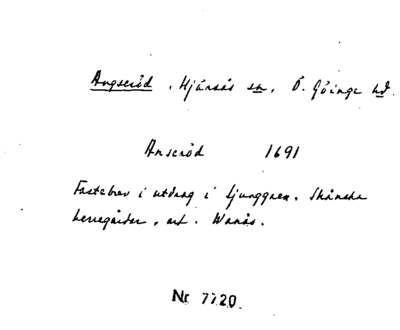 Angseröd, Hjärsås sn, Ö. Göinge hd.
Anseröd 1691
Fastebrev i utdrag i Ljunggren. Skånska
herregårdar, art. Wanås.
Nr 7720.